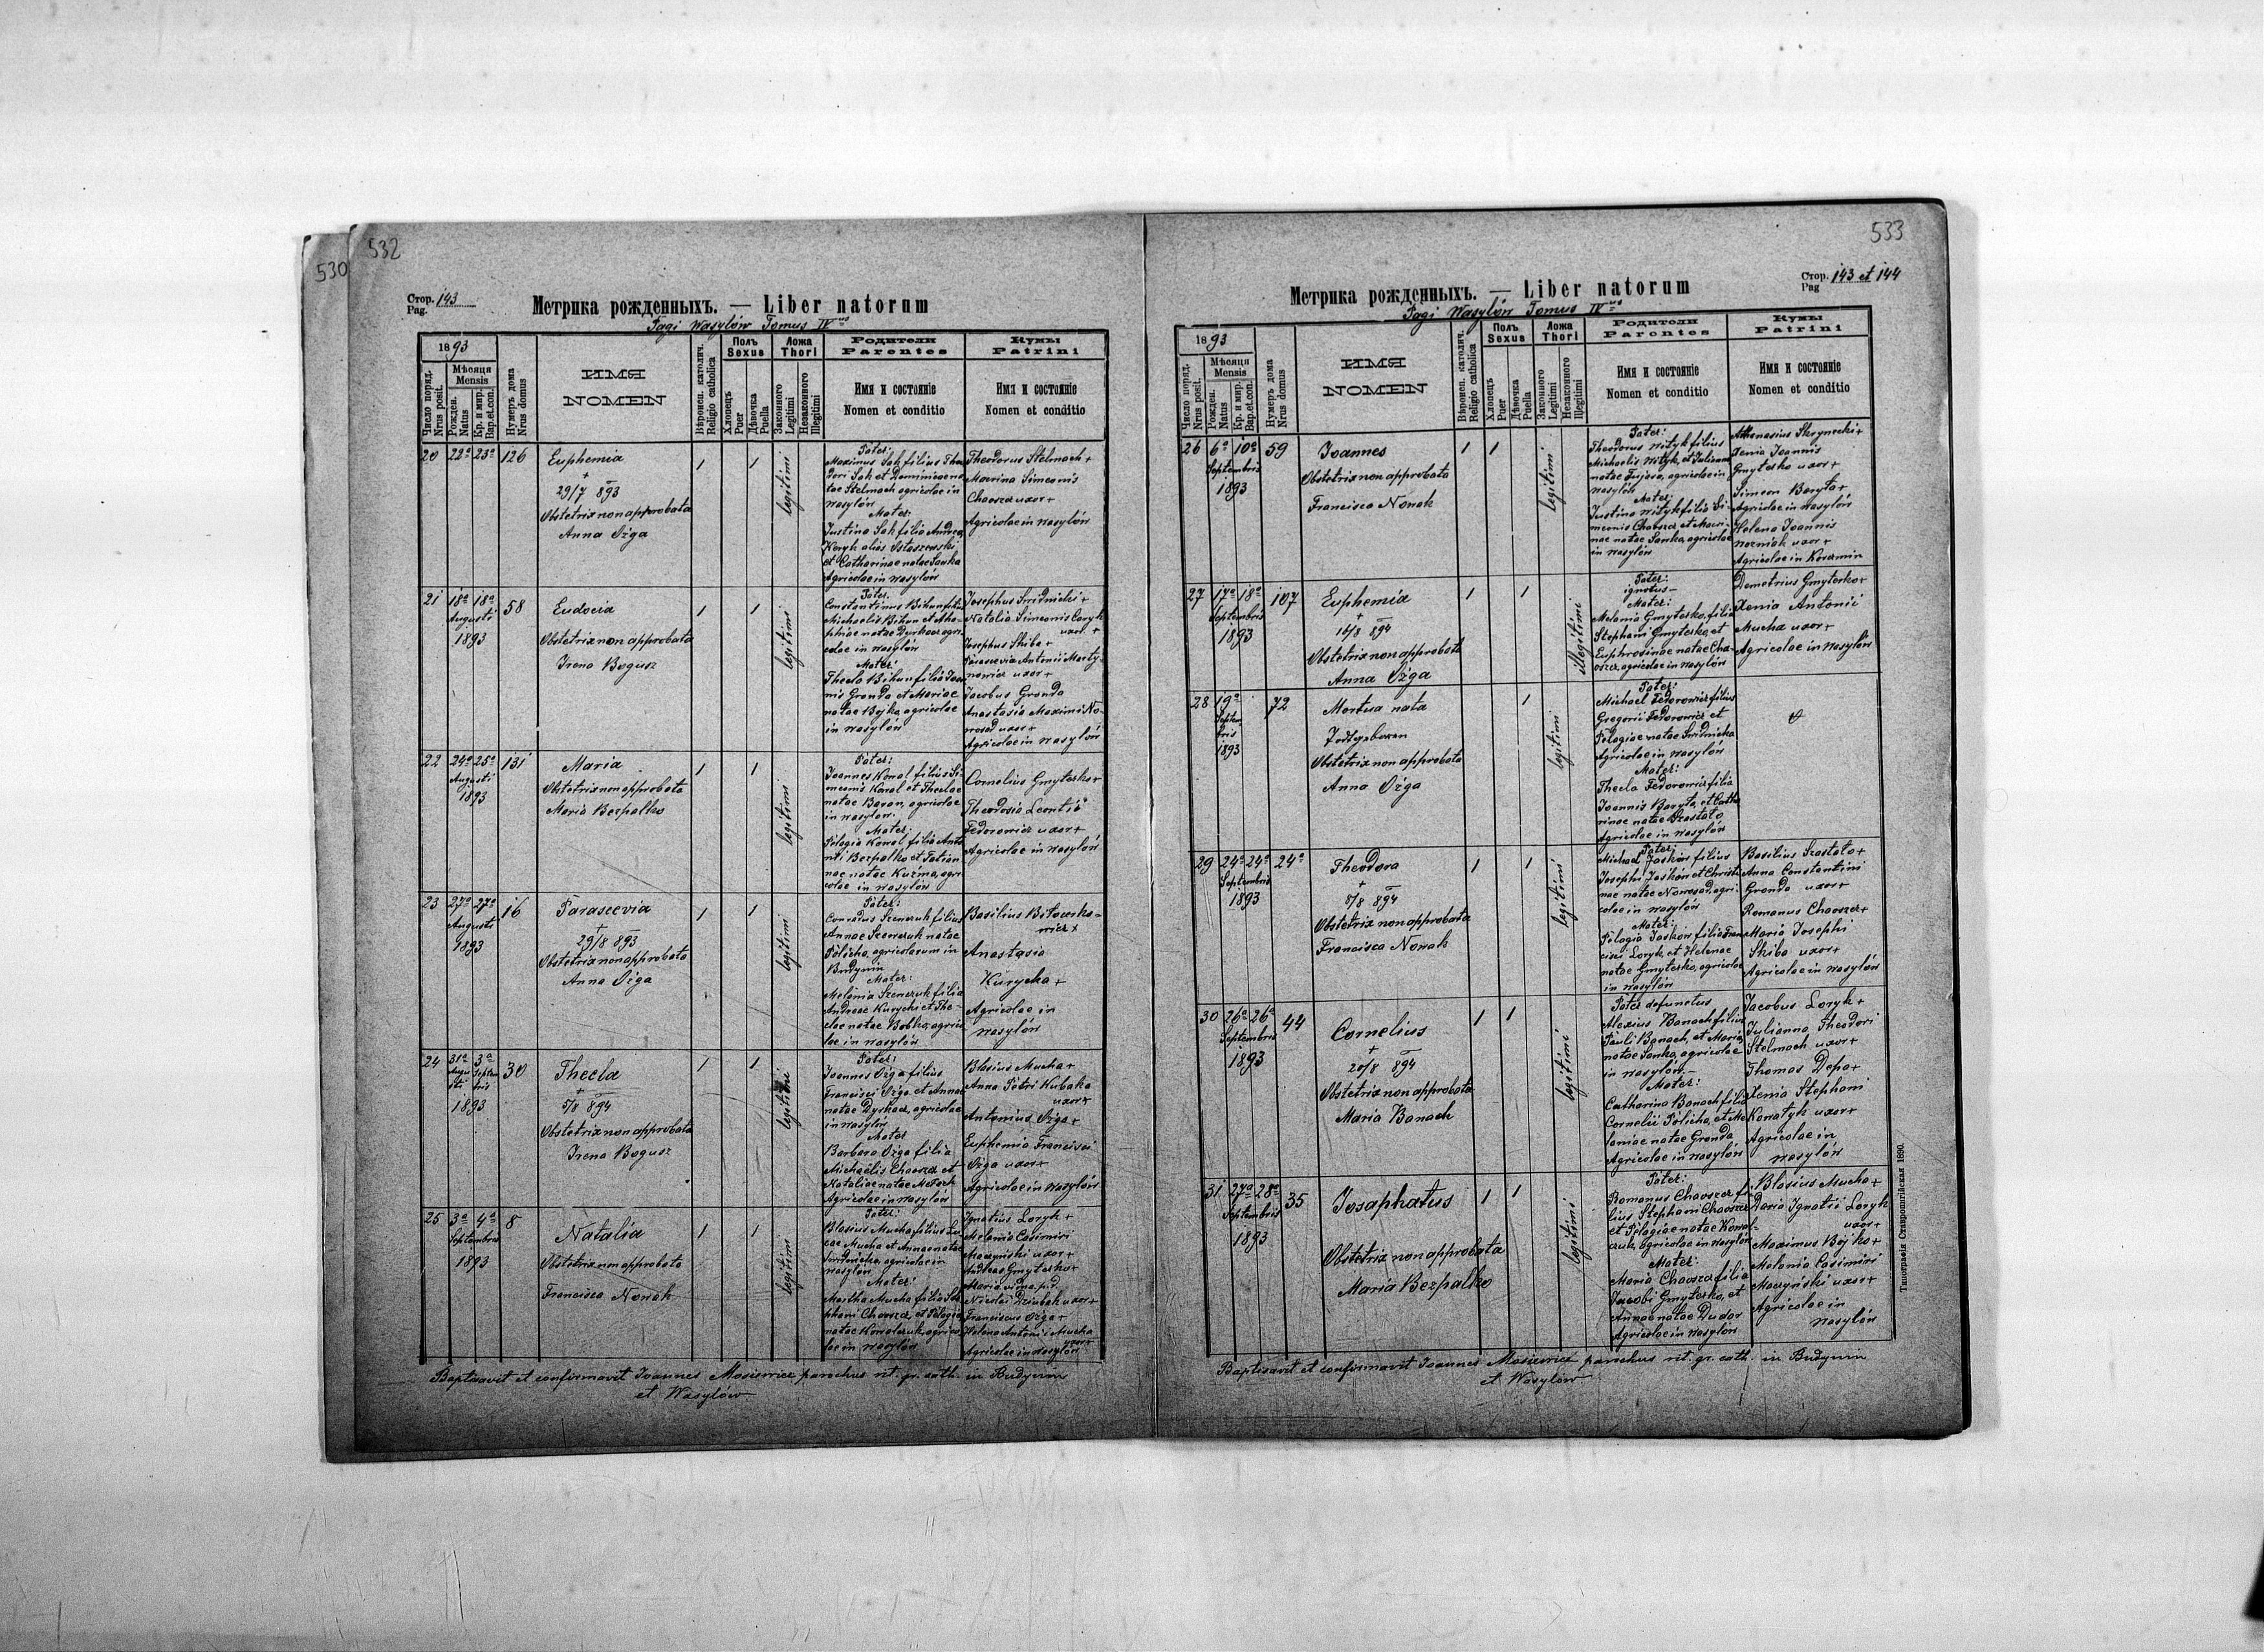 530
532
Стор. 143
Pag.
Метрика рожденныхъ. — Liber natorum
Pagi Wasylów Tomus IV
1893
Число поряд.
Nrus posit.
Мѣсяця
Mensis
Рожден.
Natus
Кр. и мир.
Bap.et.con.
Нумеръ дома
Nrus domus
ИМЯ
NOMEN
Вѣроисп. католич.
Religio catholica
Полъ
Sexus
Хлопецъ
Puer
Дѣвочка
Puella
Ложа
Thori
Законного
Legitimi
Незаконного
Illegitimi
Родители
Parentes
Имя и состояніе
Nomen et conditio
Кумы
Patrini
Имя и состояніе
Nomen et conditio
20 22a 23a 126
Euphemia
+
29/7 893
Obstetrix non approbata
Anna Ożga
1 1
legitimi
Pater:
Maximus Sak filius Theo
dori Sak et Dominicae na
tae Stelmach agricolae in
Wasylów
Mater:
Justina Sak filia Andreae
Keryk alias Ostaszewski
et Catharinae natae Sanka
Agricolae in Wasylów
Theodorus Stelmach +
Marina Simeonis
Chaoszcz uxor +
Agricolae in Wasylów
21 18a 18a 58
Augusti
1893
Eudocia
Obstetrix non approbata
Irena Bogusz
1 1
legitimi
Pater:
Constantinus Bihun filius
Michaelis Bihun et Aga-
phiae natae Dyrkacz agri
colae in Wasylów
Mater:
Thecla Bihun filia Joan
nis Gronda et Mariae
natae Bojko, agricolae
in Wasylów
Josephus Smidnicki +
Natalia Simeonis Loryk
uxor +
Josephus Skiba +
Parascevia Antonii Marty-
nowicz uxor +
Jacobus Gronda
Anastasia Maximi No-
wosad uxor +
Agricolae in Wasylów
22 24a 25a 131
Augusti
1893
Maria
Obstetrix non approbata
Maria Bezpalko
1 1
legitimi
Pater:
Joannes Kowal filius Si
meonis Kowal et Theclae
natae Baran, agricolae
in Wasylów.
Mater:
Pelagia Kowal filia Anto
nii Bezpalko et Tatian
nae natae Kuźma, agri
colae in Wasylów
Cornelius Gmyterko +
Theodosia Leontii
Fedorowicz uxor +
Agricolae in Wasylów
23 27a 27a 16
Augusti
1893
Parascevia
+
29/8 893
Obstetrix non approbata
Anna Ożga
1 1
legitimi
Pater:
Conradus Szewczuk filius
Annae Szewczuk natae
Pólicha, agricolarum in
Budynin
Mater:
Melania Szewczuk filia
Andreae Kurycki et The
clae natae Bobko, agrico
lae in Wasylów
Basilius Bitowsko-
wicz +
Anastasia
Kurycka +
Agricolae in
Wasylów
24 31a 3a 30
Augu Septem
sti bris
1893
Thecla
+
5/8 894
Obstetrix non approbata
Irena Bogusz
1 1
legitimi
Pater:
Joannes Ożga filius
Francisci Ożga et Annae
natae Dyrkacz, agricolae
in Wasylów
Mater
Barbara Ożga filia
Michaëlis Chaoszcz et
Nataliae natae Matach
Agricolae in Wasylów
Blasius Mucha +
Anna Petri Kubaka
uxor +
Antonius Ożga +
Euphemia Francisci
Ożga uxor +
Agricolae in Wasylów
25 3a 4a 8
Septembris
1893
Natalia
Obstetrix non approbata
Francisca Nowak
1 1
legitimi
Pater:
Blasius Mucha filius Lu
cae Mucha et Annae natae
Smidnicka, agricolae in
Wasylów
Mater:
Martha Mucha filia Ste
phani Chaoszcz et Pelagiae
natae Kowalczuk, agrico
lae in Wasylów
Ignatius Loryk +
Melania Casimiri
Maczyński uxor +
Andreas Gmyterko +
Maria vidua p.d.
Nicolai Dziubak uxor +
Franciscus Ożga +
Helena Antonii Mucha
uxor +
Agricolae in Wasylów
Baptisavit et confirmavit Joannes Mosiewicz parochus rit. gr. cath. in Budynin
et Wasylów
533
Стор. 143 et 144
Pag
Метрика рожденныхъ. — Liber natorum
Pagi Wasylów Tomus IV
1893
Число поряд.
Nrus posit.
Мѣсяця
Mensis
Рожден.
Natus
Кр. и мир.
Bap.et.con.
Нумеръ дома
Nrus domus
ИМЯ
NOMEN
Вѣроисп. католич.
Religio catholica
Полъ
Sexus
Хлопецъ
Puer
Дѣвочка
Puella
Ложа
Thori
Законного
Legitimi
Незаконного
Illegitimi
Родители
Parentes
Имя и состояніе
Nomen et conditio
Кумы
Patrini
Имя и состояніе
Nomen et conditio
26 6a 10a 59
Septembris
1893
Joannes
Obstetrix non approbata
Francisca Nowak
1 1
legitimi
Pater:
Theodorus Wityk filius
Michaelis Wityk, et Julianae
natae agricolae in
Wasylów
Mater:
Justina Wityk filia Si-
meonis Chaoszcz et Mari-
nae natae Sanka, agricolae
in Wasylów
Athanasius Skrynecki +
Xenia Joannis
Gmyterko uxor +
Simeon Baryta +
Agricolae in Wasylów
Helena Joannis
Woźniak uxor +
Agricolae in Korczmin
27 17a 18a 107
Septembris
1893
Euphemia
+
14/8 894
Obstetrix non approbata
Anna Ożga
1 1
illegitimi
Pater:
ignotus —
Mater:
Melania Gmyterko, filia
Stephani Gmyterko, et
Euphrosinae natae Cha-
oszcz, agricolae in Wasylów
Demetrius Gmyterko +
Xenia Antonii
Mucha uxor +
Agricolae in Wasylów
28 19a 72
Septem
bris
1893
Mortua nata
Todtgeboren
Obstetrix non approbata
Anna Ożga
1
legitimi
Pater:
Michael Fedorowicz filius
Gregorii Fedorowicz et
Pelagiae natae Smidnicka
Agricolae in Wasylów
Mater:
Thecla Fedorowicz filia
Joannis Baryta, et Catha
rinae natae Szostato
Agricolae in Wasylów
29 24a 24a 24a
Septembris
1893
Theodora
+
5/8 894
Obstetrix non approbata
Francisca Nowak
1 1
legitimi
Pater:
Michael Jaśków filius
Josephi Jaśków et Christi
nae natae Nowosad, agri-
colae in Wasylów
Mater:
Pelagia Jaśków filia Fran
cisci Loryk, et Helenae
natae Gmyterko, agricolae
in Wasylów
Basilius Szostato +
Anna Constantini
Gronda uxor +
Romanus Chaoszcz +
Maria Josephi
Skiba uxor +
Agricolae in Wasylów
30 26a 26a 44
Septembris
1893
Cornelius
+
20/8 894
Obstetrix non approbata
Maria Banach
1 1
legitimi
Pater defunctus
Alexius Banach filius
Pauli Banach, et Mariae
natae Sanka, agricolae
in Wasylów —
Mater:
Catharina Banach filia
Cornelii Pólicha, et Me
laniae natae Gronda
Agricolae in Wasylów
Jacobus Loryk +
Julianna Theodori
Stelmach uxor +
Thomas Depa +
Xenia Stephani
Konatyk uxor +
Agricolae in
Wasylów
31 27a 28a 35
Septembris
1893
Josaphatus
Obstetrix non approbata
Maria Bezpalko
1 1
legitimi
Pater:
Romanus Chaoszcz fi-
lius Stephani Chaoszcz
et Pelagiae natae Kowal-
czuk, agricolae in Wasylów
Mater:
Maria Chaoszcz filia
Jacobi Gmyterko, et
Annae natae Dudar
Agricolae in Wasylów
Blasius Mucha +
Daria Ignatii Loryk
uxor +
Maximus Bojko +
Melania Casimiri
Maczyński uxor +
Agricolae in
Wasylów
Baptisavit et confirmavit Joannes Mosiewicz parochus rit. gr. cath. in Budynin
et Wasylów
Типографія Ставропигійская 1890.